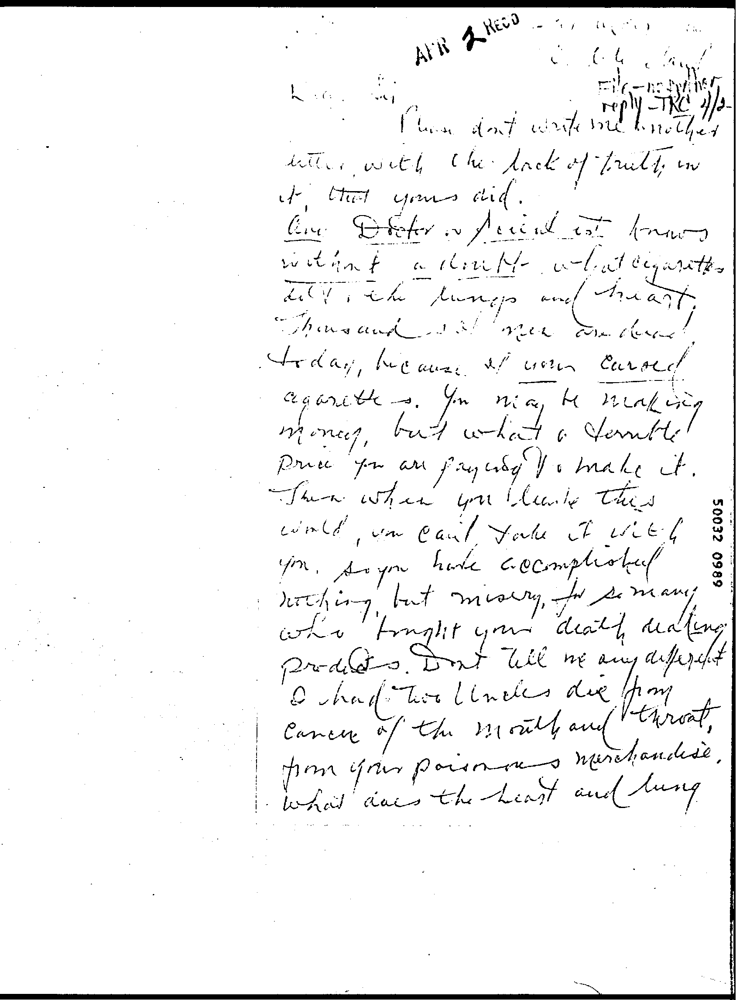 APR 2 REC'D
File - no further
reply - TKC 4/2
Dear Sir
Please dont write me another
letter, with the lack of truth in
it, that yours did.
Any Doctor or Specialist knows
without a doubt what cigarettes
do to the lungs and heart.
Thousands of men are dead
today, because of your cursed
cigarettes. You may be making
money, but what a terrible
price you are paying to make it.
Then when you leave this
world, you can't take it with
you. So you have accomplished
nothing but misery, for so many
who bought your death dealing
products. Dont tell me any different
I had two Uncles die from
Cancer of the mouth and throat,
from your poisonous merchandise.
What does the heart and lung
50032 0989